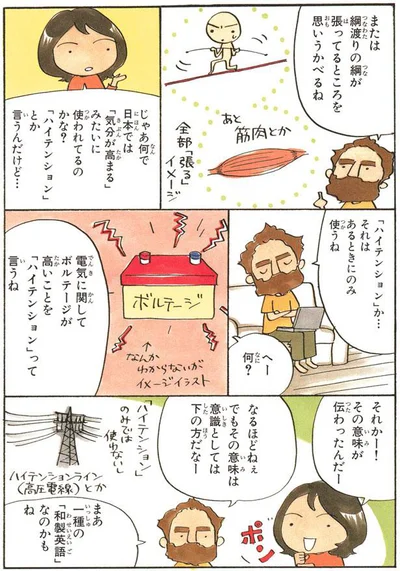 または
綱渡りの綱が
張ってるところを
思いうかべるね
あと
筋肉とか
全部「張る」
イメージ
じゃあ何で
日本では
「気分が高まる」
みたいに
使われてるの
かな?
「ハイテンション」
とか
言うんだけど…
「ハイテンション」か…
それは
あるときにのみ
使うね
へー
何?
ボルテージ
↑
なんか
わからないが
イメージイラスト
電気に関して
ボルテージが
高いことを
「ハイテンション」って
言うね
それかー!
その意味が
伝わったんだー
ポン
なるほどねぇ
でもその意味は
意識としては
下の方だなー
「ハイテンション」
のみでは
使わないし
ハイテンションライン
(高圧電線)とか
まあ
一種の
「和製英語」
なのかも
ね